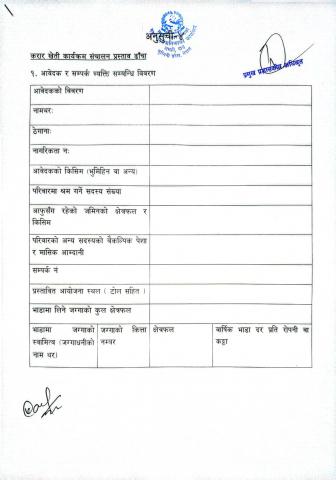 अनुसूची
करार खेती कार्यक्रम संचालन प्रस्ताव ढाँचा
प्रमुख प्रशासकीय अधिकृत
१. आवेदक र सम्पर्क व्यक्ति सम्बन्धि विवरण
आवेदकको विवरण
नामथर:
ठेगाना:
नागरिकता न:
आवेदकको किसिम (भूमिहिन वा अन्य)
परिवारमा श्रम गर्ने सदस्य संख्या
आफूसँग रहेको जमिनको क्षेत्रफल र
किसिम
परिवारको अन्य सदस्यको बैकल्पिक पेशा
र मासिक आम्दानी
सम्पर्क नं
प्रस्तावित आयोजना स्थल ( टोल सहित )
भाडामा लिने जग्गाको कुल क्षेत्रफल
भाडामा जग्गाको स्वामित्व (जग्गाधनीको नाम थर)
जग्गाको कित्ता नम्वर
क्षेत्रफल
वार्षिक भाडा दर प्रति रोपनी वा कठ्ठा